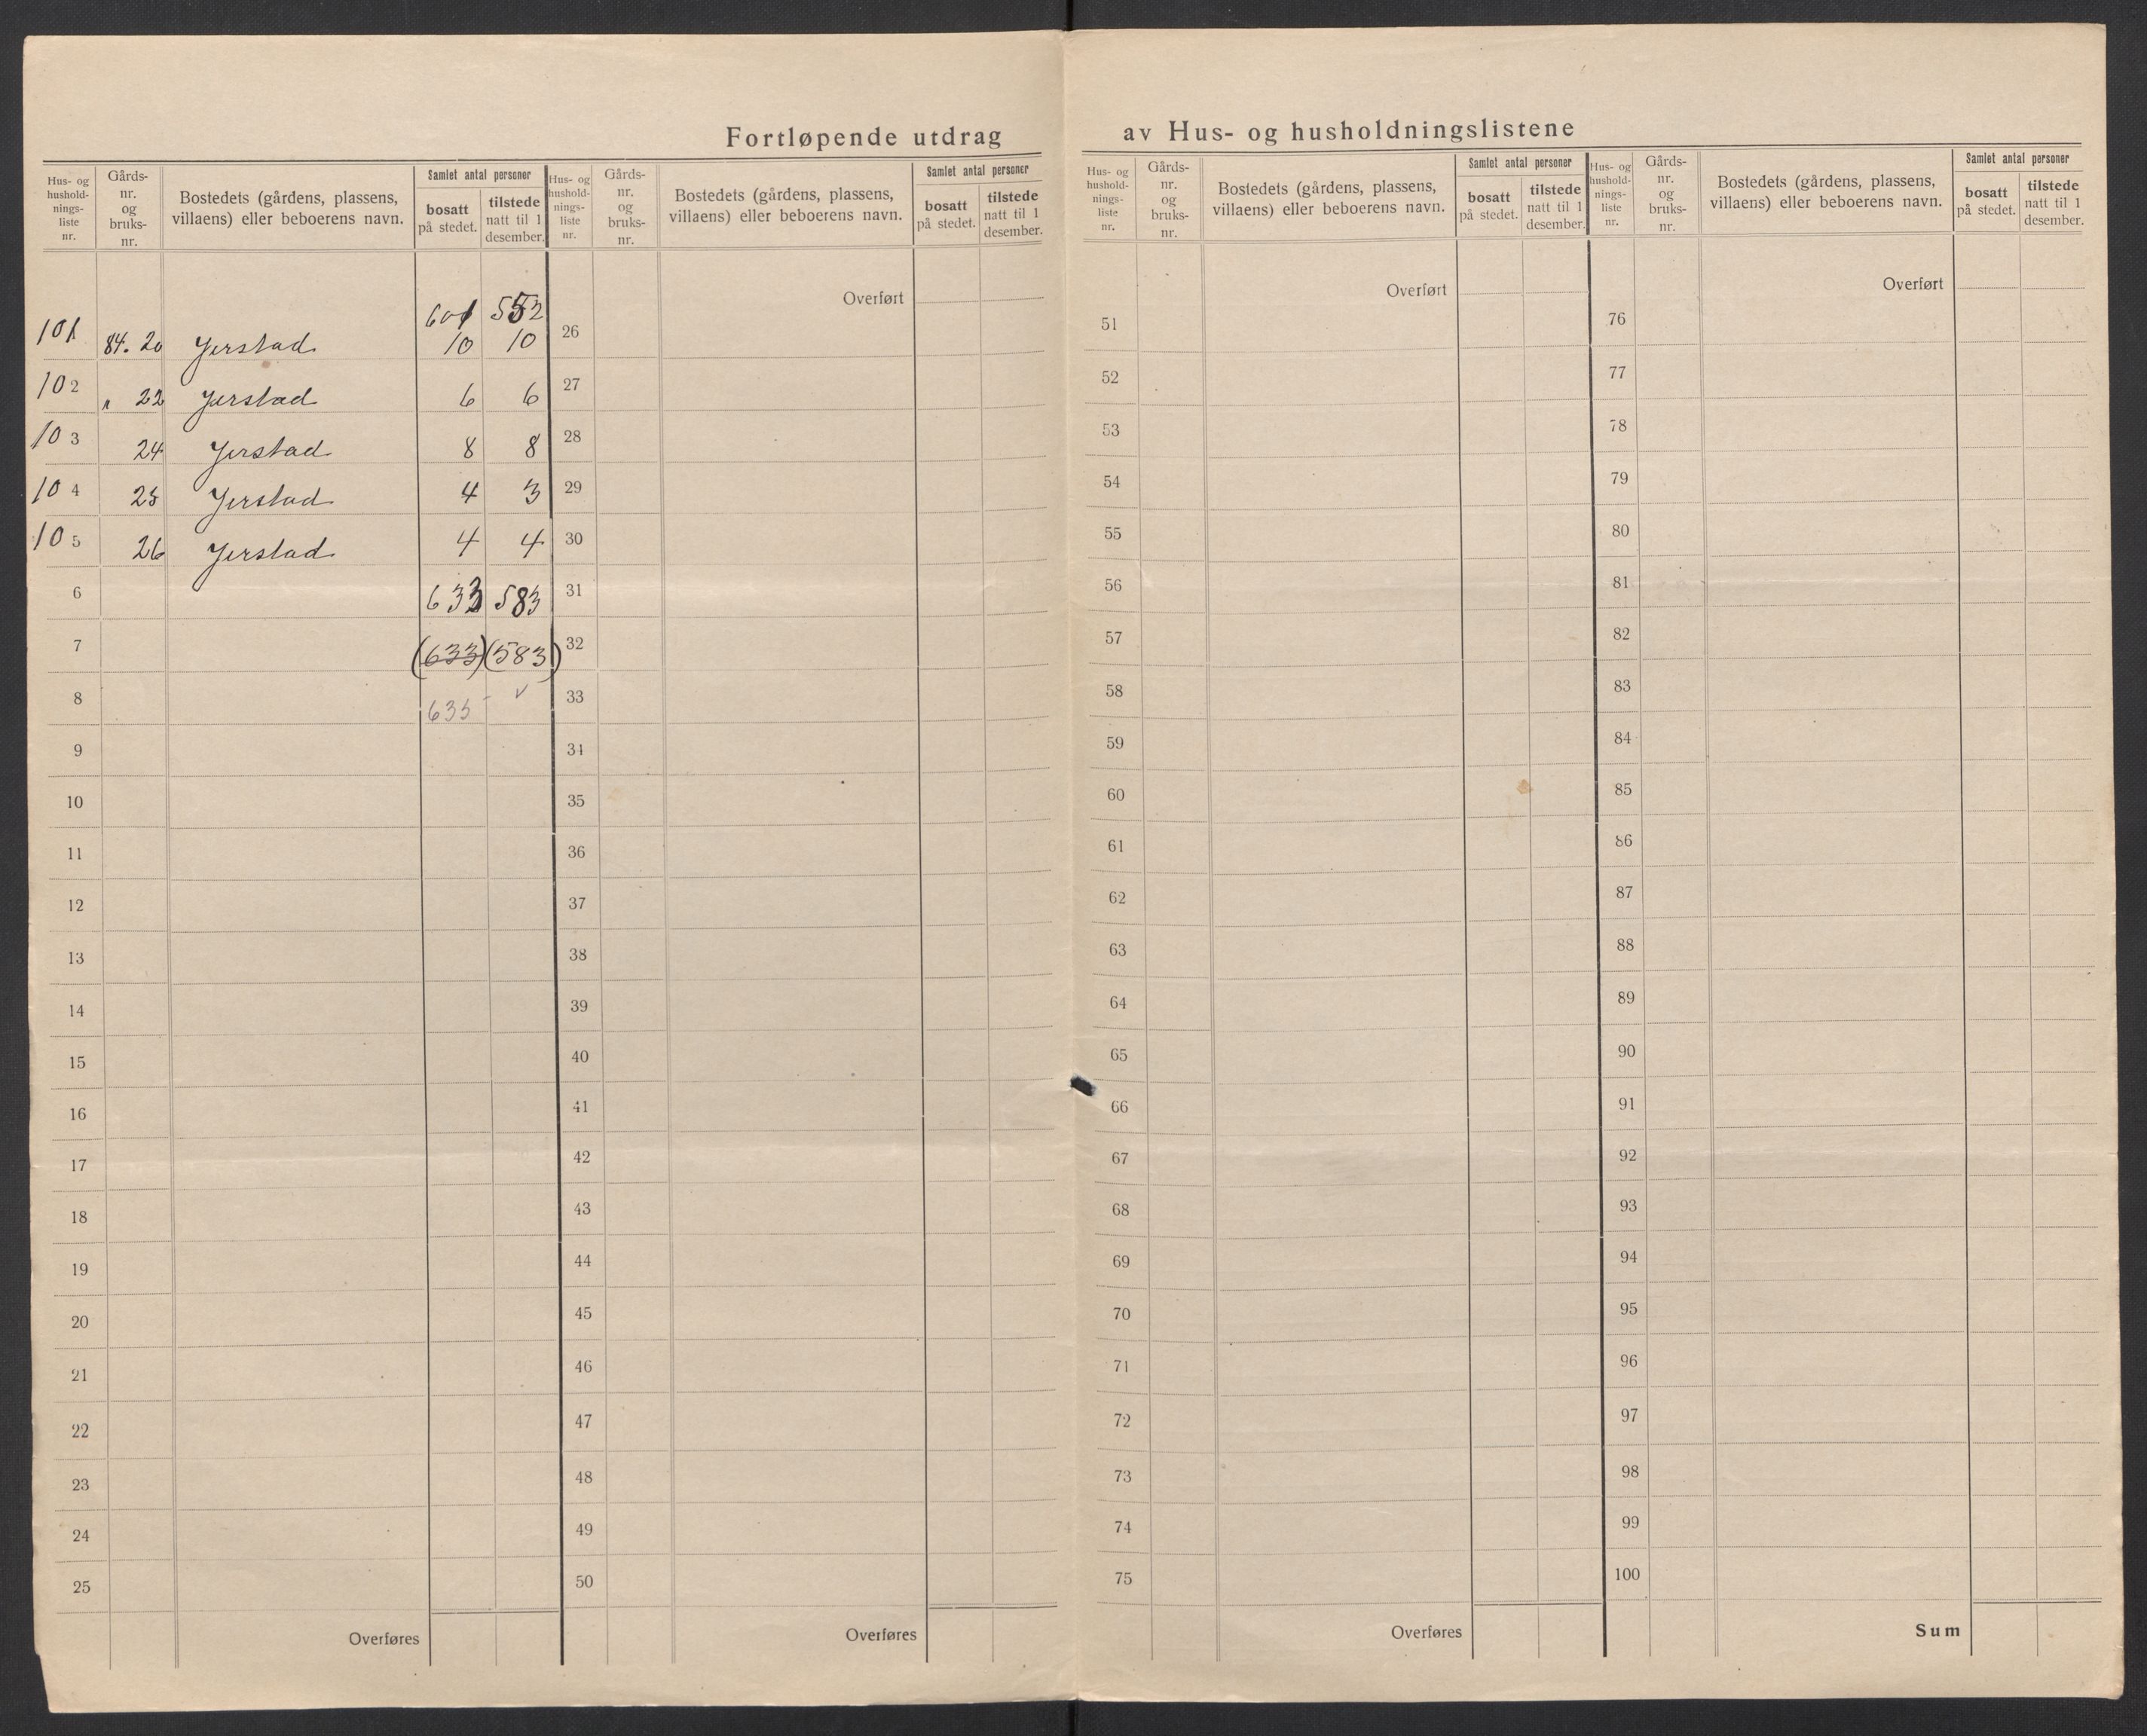 Fortløpende utdrag av Hus- og husholdningslistene
Hus- og hushold-nings-liste nr. Gårds-nr. og bruks-nr. Bostedets (gårdens, plassens, villaens) eller beboerens navn. Samlet antal personer bosatt på stedet. tilstede natt til 1 desember.
601 552
101 84. 20 Jerstad 10 10
102 " 22 Jerstad 6 6
103 24 Jerstad 8 8
104 25 Jerstad 4 3
105 26 Jerstad 4 4
6 633 583
7 (633) (583)
8 635 - v
9
10
11
12
13
14
15
16
17
18
19
20
21
22
23
24
25
Overføres
Hus- og hushold-nings-liste nr. Gårds-nr. og bruks-nr. Bostedets (gårdens, plassens, villaens) eller beboerens navn. Samlet antal personer bosatt på stedet. tilstede natt til 1 desember.
Overført
26
27
28
29
30
31
32
33
34
35
36
37
38
39
40
41
42
43
44
45
46
47
48
49
50
Overføres
Hus- og hushold-nings-liste nr. Gårds-nr. og bruks-nr. Bostedets (gårdens, plassens, villaens) eller beboerens navn. Samlet antal personer bosatt på stedet. tilstede natt til 1 desember.
Overført
51
52
53
54
55
56
57
58
59
60
61
62
63
64
65
66
67
68
69
70
71
72
73
74
75
Overføres
Hus- og hushold-nings-liste nr. Gårds-nr. og bruks-nr. Bostedets (gårdens, plassens, villaens) eller beboerens navn. Samlet antal personer bosatt på stedet. tilstede natt til 1 desember.
Overført
76
77
78
79
80
81
82
83
84
85
86
87
88
89
90
91
92
93
94
95
96
97
98
99
100
Sum